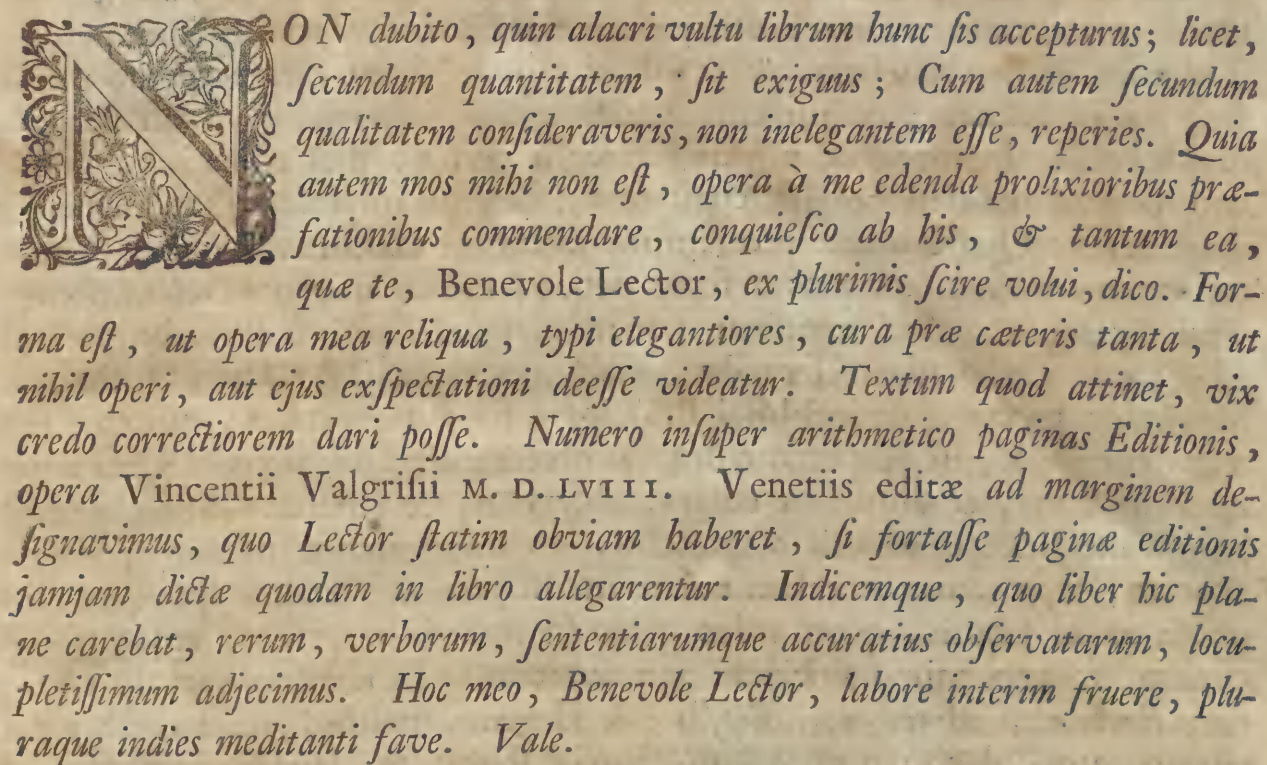 NON dubito, quin alacri vultu librum hunc ſis accepturus; licet,
ſecundum quantitatem, ſit exiguus; Cum autem ſecundum
qualitatem conſideraveris, non inelegantem eſſe, reperies. Quia
autem mos mihi non eſt, opera à me edenda prolixioribus præ-
fationibus commendare, conquieſco ab his, & tantum ea,
quæ te, Benevole Lector, ex plurimis ſcire volui, dico. For-
ma eſt, ut opera mea reliqua, typi elegantiores, cura præ cæteris tanta, ut
nihil operi, aut ejus exſpectationi deeſſe videatur. Textum quod attinet, vix
credo correctiorem dari poſſe. Numero inſuper arithmetico paginas Editionis,
opera Vincentii Valgriſii M. D. LVIII. Venetiis editæ ad marginem de-
ſignavimus, quo Lector ſtatim obviam haberet, ſi fortaſſe paginæ editionis
jamjam dictæ quodam in libro allegarentur. Indicemque, quo liber hic pla-
ne carebat, rerum, verborum, ſententiarumque accuratius obſervatarum, locu-
pletiſſimum adjecimus. Hoc meo, Benevole Lector, labore interim fruere, plu-
raque indies meditanti fave. Vale.